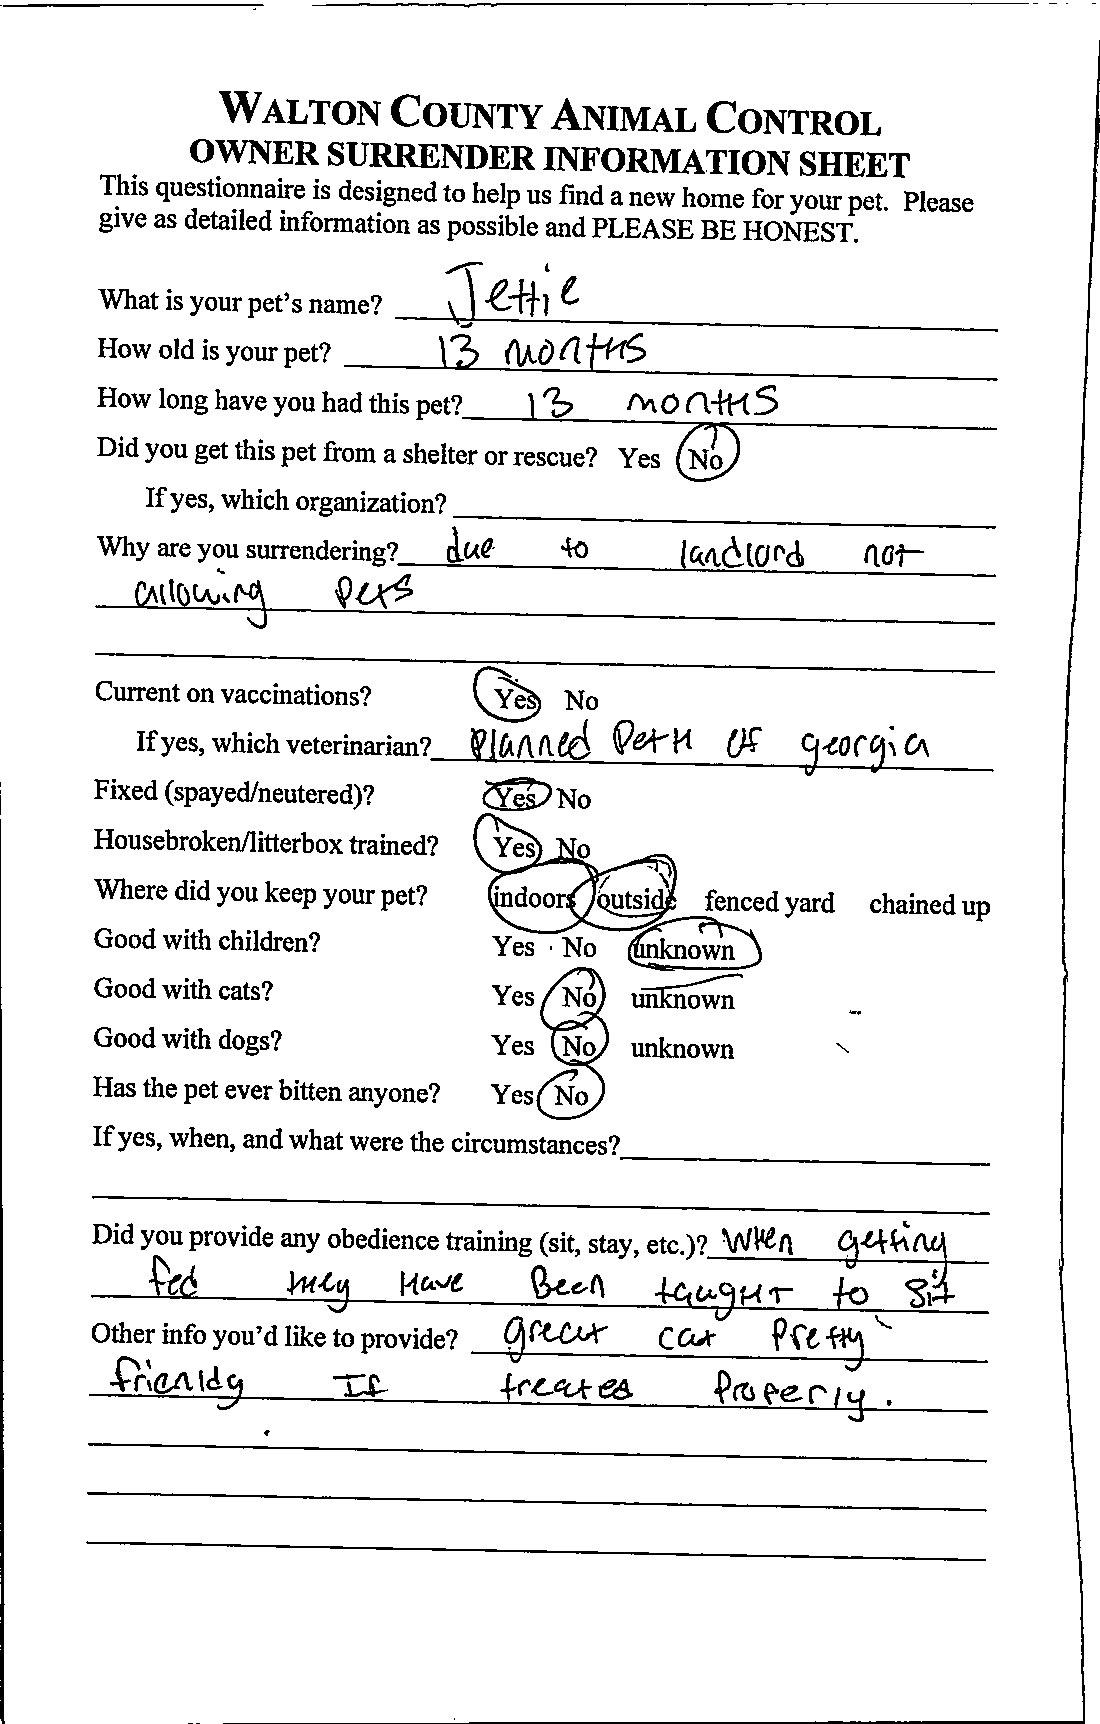 WALTON COUNTY ANIMAL CONTROL
OWNER SURRENDER INFORMATION SHEET
This questionnaire is designed to help us find a new home for your pet. Please
give as detailed information as possible and PLEASE BE HONEST.
What is your pet's name? Jettie
How old is your pet? 13 months
How long have you had this pet? 13 months
Did you get this pet from a shelter or rescue? Yes No
If yes, which organization?
Why are you surrendering? due to landlord not
allowing pets
Current on vaccinations? Yes No
If yes, which veterinarian? Planned PetH of georgia
Fixed (spayed/neutered)? Yes No
Housebroken/litterbox trained? Yes No
Where did you keep your pet? indoors outside fenced yard chained up
Good with children? Yes No unknown
Good with cats? Yes No unknown
Good with dogs? Yes No unknown
Has the pet ever bitten anyone? Yes No
If yes, when, and what were the circumstances?
Did you provide any obedience training (sit, stay, etc.)? When getting
fed may Have Been taught to sit
Other info you'd like to provide? great cat Pretty
friendly If treated Properly.